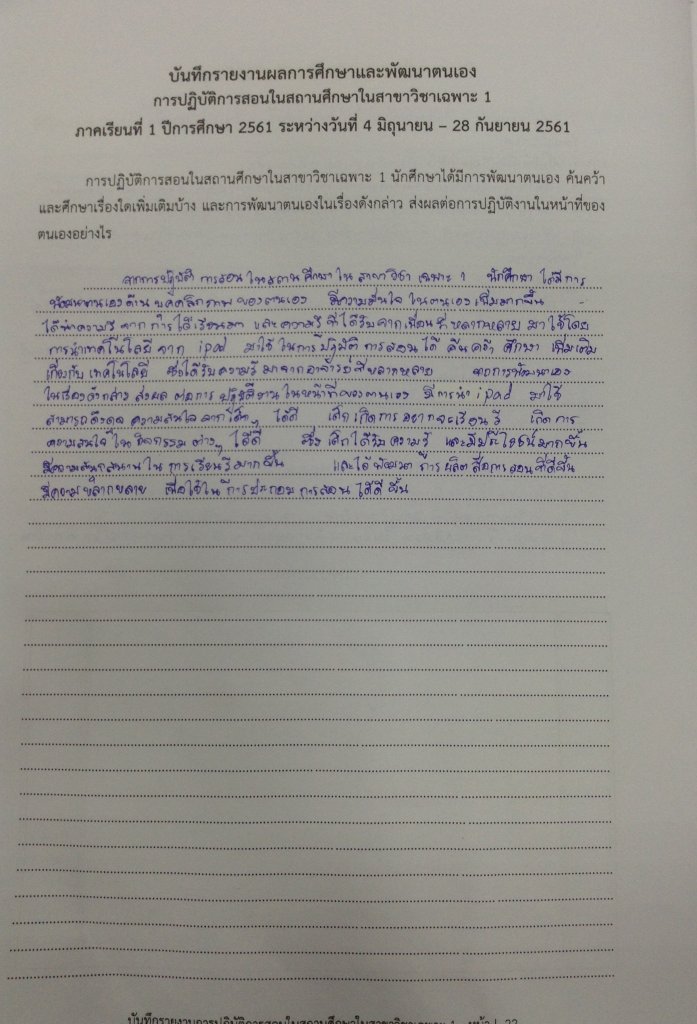 บันทึกรายงานผลการศึกษาและพัฒนาตนเอง
การปฏิบัติการสอนในสถานศึกษาในสาขาวิชาเฉพาะ 1
ภาคเรียนที่ 1 ปีการศึกษา 2561 ระหว่างวันที่ 4 มิถุนายน – 28 กันยายน 2561
การปฏิบัติการสอนในสถานศึกษาในสาขาวิชาเฉพาะ 1 นักศึกษาได้มีการพัฒนาตนเอง ค้นคว้า
และศึกษาเรื่องใดเพิ่มเติมบ้าง และการพัฒนาตนเองในเรื่องดังกล่าว ส่งผลต่อการปฏิบัติงานในหน้าที่ของ
ตนเองอย่างไร
จากการปฏิบัติ การสอน ในสถานศึกษา ใน สาขาวิชา เฉพาะ 1 นักศึกษา ได้มีการ
พัฒนาตนเองด้าน บุคลิกภาพ ของตนเอง มีความมั่นใจ ในตนเอง เพิ่มมากขึ้น
ได้นำความรู้ จาก การได้เรียนมา และความรู้ ที่ได้รับจากเพื่อนที่หลากหลาย มาใช้โดย
การนำเทคโนโลยีจาก ipad มาใช้ ในการปฏิบัติ การสอนได้ ค้นคว้า ศึกษา เพิ่มเติม
เกี่ยวกับ เทคโนโลยี ซึ่งได้รับความรู้ มาจากอาจารย์ที่หลากหลาย จากการพัฒนาตนเอง
ในเรื่องดังกล่าว ส่งผล ต่อการ ปฏิบัติงาน ในหน้าที่ของตนเอง มีการนำ ipad มาใช้
สามารถดึงดูด ความสนใจ จากเด็กๆ ได้ดี เด็กเกิดการ อยากจะเรียนรู้ เกิดการ
ความสนใจ ใน กิจกรรม ต่างๆ ได้ดี ซึ่ง เด็กได้รับ ความรู้ และมีประโยชน์มากขึ้น
มีความสนุกสนาน ใน การเรียนรู้มากขึ้น และได้ พัฒนา การ ผลิต สื่อการสอนที่ดีขึ้น
มีความหลากหลาย เพื่อใช้ใน การประกอบ การสอน ได้ดี ขึ้น
บันทึกรายงานการปฏิบัติการสอนในสถานศึกษาในสาขาวิชาเฉพาะ 1 หน้า | 22